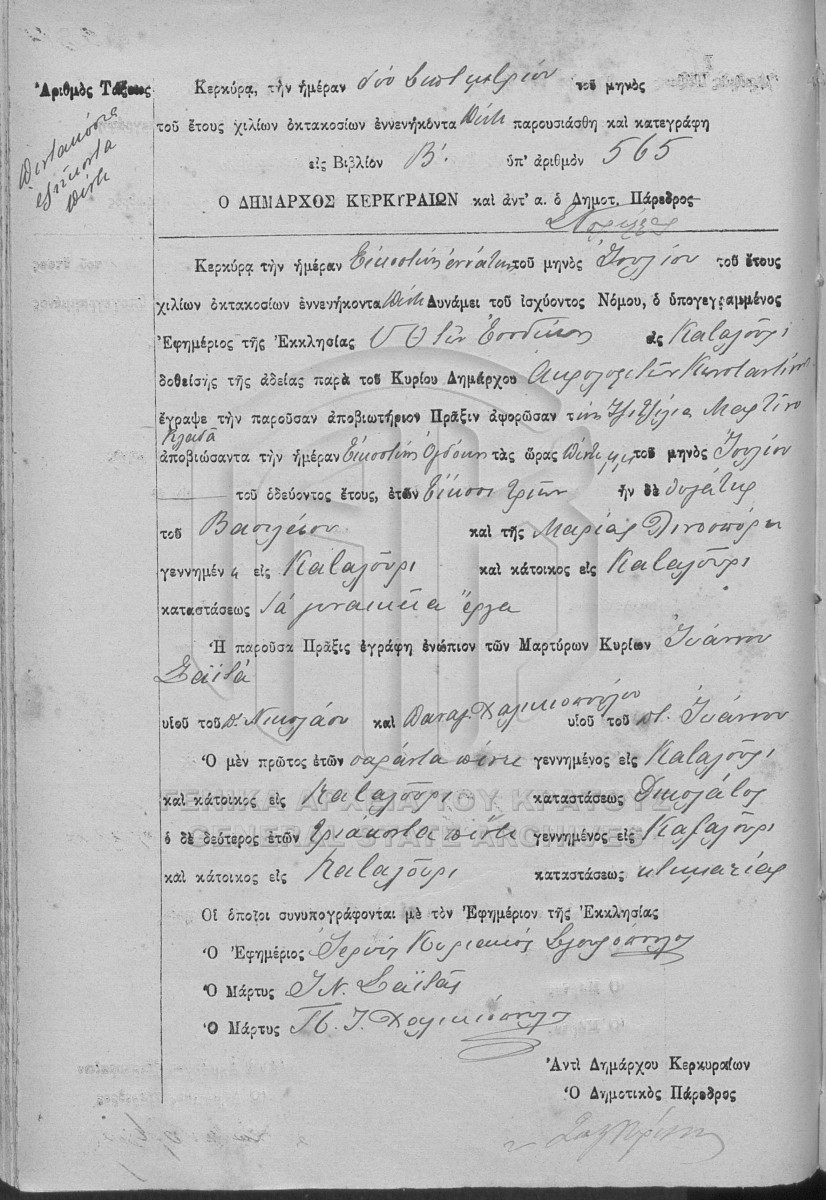 Ἀριθμὸς Τάξεως
Πεντακόσια
ἑξήκοντα
πέντε
Κερκύρᾳ, τὴν ἡμέραν δύο Σεπτεμβρίου τοῦ μηνὸς
τοῦ ἔτους χιλίων ὀκτακοσίων ἐννενήκοντα πέντε παρουσιάσθη καὶ κατεγράφη
εἰς Βιβλίον Β΄. ὑπ' ἀριθμὸν 565
Ο ΔΗΜΑΡΧΟΣ ΚΕΡΚΥΡΑΙΩΝ καὶ ἀντ' α. ὁ Δημοτ. Πάρεδρος
Κερκύρᾳ τὴν ἡμέραν Εἰκοστὴν ἐννάτην τοῦ μηνὸς Ἰουλίου τοῦ ἔτους
χιλίων ὀκτακοσίων ἐννενήκοντα πέντε Δυνάμει τοῦ ἰσχύοντος Νόμου, ὁ ὑπογεγραμμένος
Ἐφημέριος τῆς Ἐκκλησίας εἰς
δοθείσης τῆς ἀδείας παρὰ τοῦ Κυρίου Δημάρχου Κωνσταντίν
ἔγραψε τὴν παροῦσαν ἀποβιωτήριον Πρᾶξιν ἀφορῶσαν τὴν Μαρτίνο
ἀποβιώσαντα τὴν ἡμέραν Εἰκοστὴν Ὀγδόην τὰς ὥρας πέντε τοῦ μηνὸς Ἰουλίου
τοῦ ὁδεύοντος ἔτους, ἐτῶν Εἴκοσι τριῶν ἦν δὲ θυγάτηρ
τοῦ Βασιλείου καὶ τῆς Μαρίας
γεννημέν η εἰς καὶ κάτοικος εἰς
καταστάσεως τὰ γυναικεῖα ἔργα
Ἡ παροῦσα Πρᾶξις ἐγράφη ἐνώπιον τῶν Μαρτύρων Κυρίων Ἰωάννου
Σαϊδᾶ
υἱοῦ τοῦ π. Νικολάου καὶ Παναγ. Χαλικιοπούλου υἱοῦ τοῦ π. Ἰωάννου
Ὁ μὲν πρῶτος ἐτῶν σαράντα πέντε γεννημένος εἰς
καὶ κάτοικος εἰς καταστάσεως
ὁ δὲ δεύτερος ἐτῶν τριακοντα πέντε γεννημένος εἰς
καὶ κάτοικος εἰς καταστάσεως κτηματίας
Οἱ ὁποῖοι συνυπογράφονται μὲ τὸν Ἐφημέριον τῆς Ἐκκλησίας
Ὁ Ἐφημέριος Κυριακὸς
Ὁ Μάρτυς Ι. Ν. Σαϊδᾶς
Ὁ Μάρτυς Π. Ι. Χαλικιόπουλος
Ἀντὶ Δημάρχου Κερκυραίων
Ὁ Δημοτικὸς Πάρεδρος
ΓΕΝΙΚΑ ΑΡΧΕΙΑ ΤΟΥ ΚΡΑΤΟΥΣ
GENERAL STATE ARCHIVES